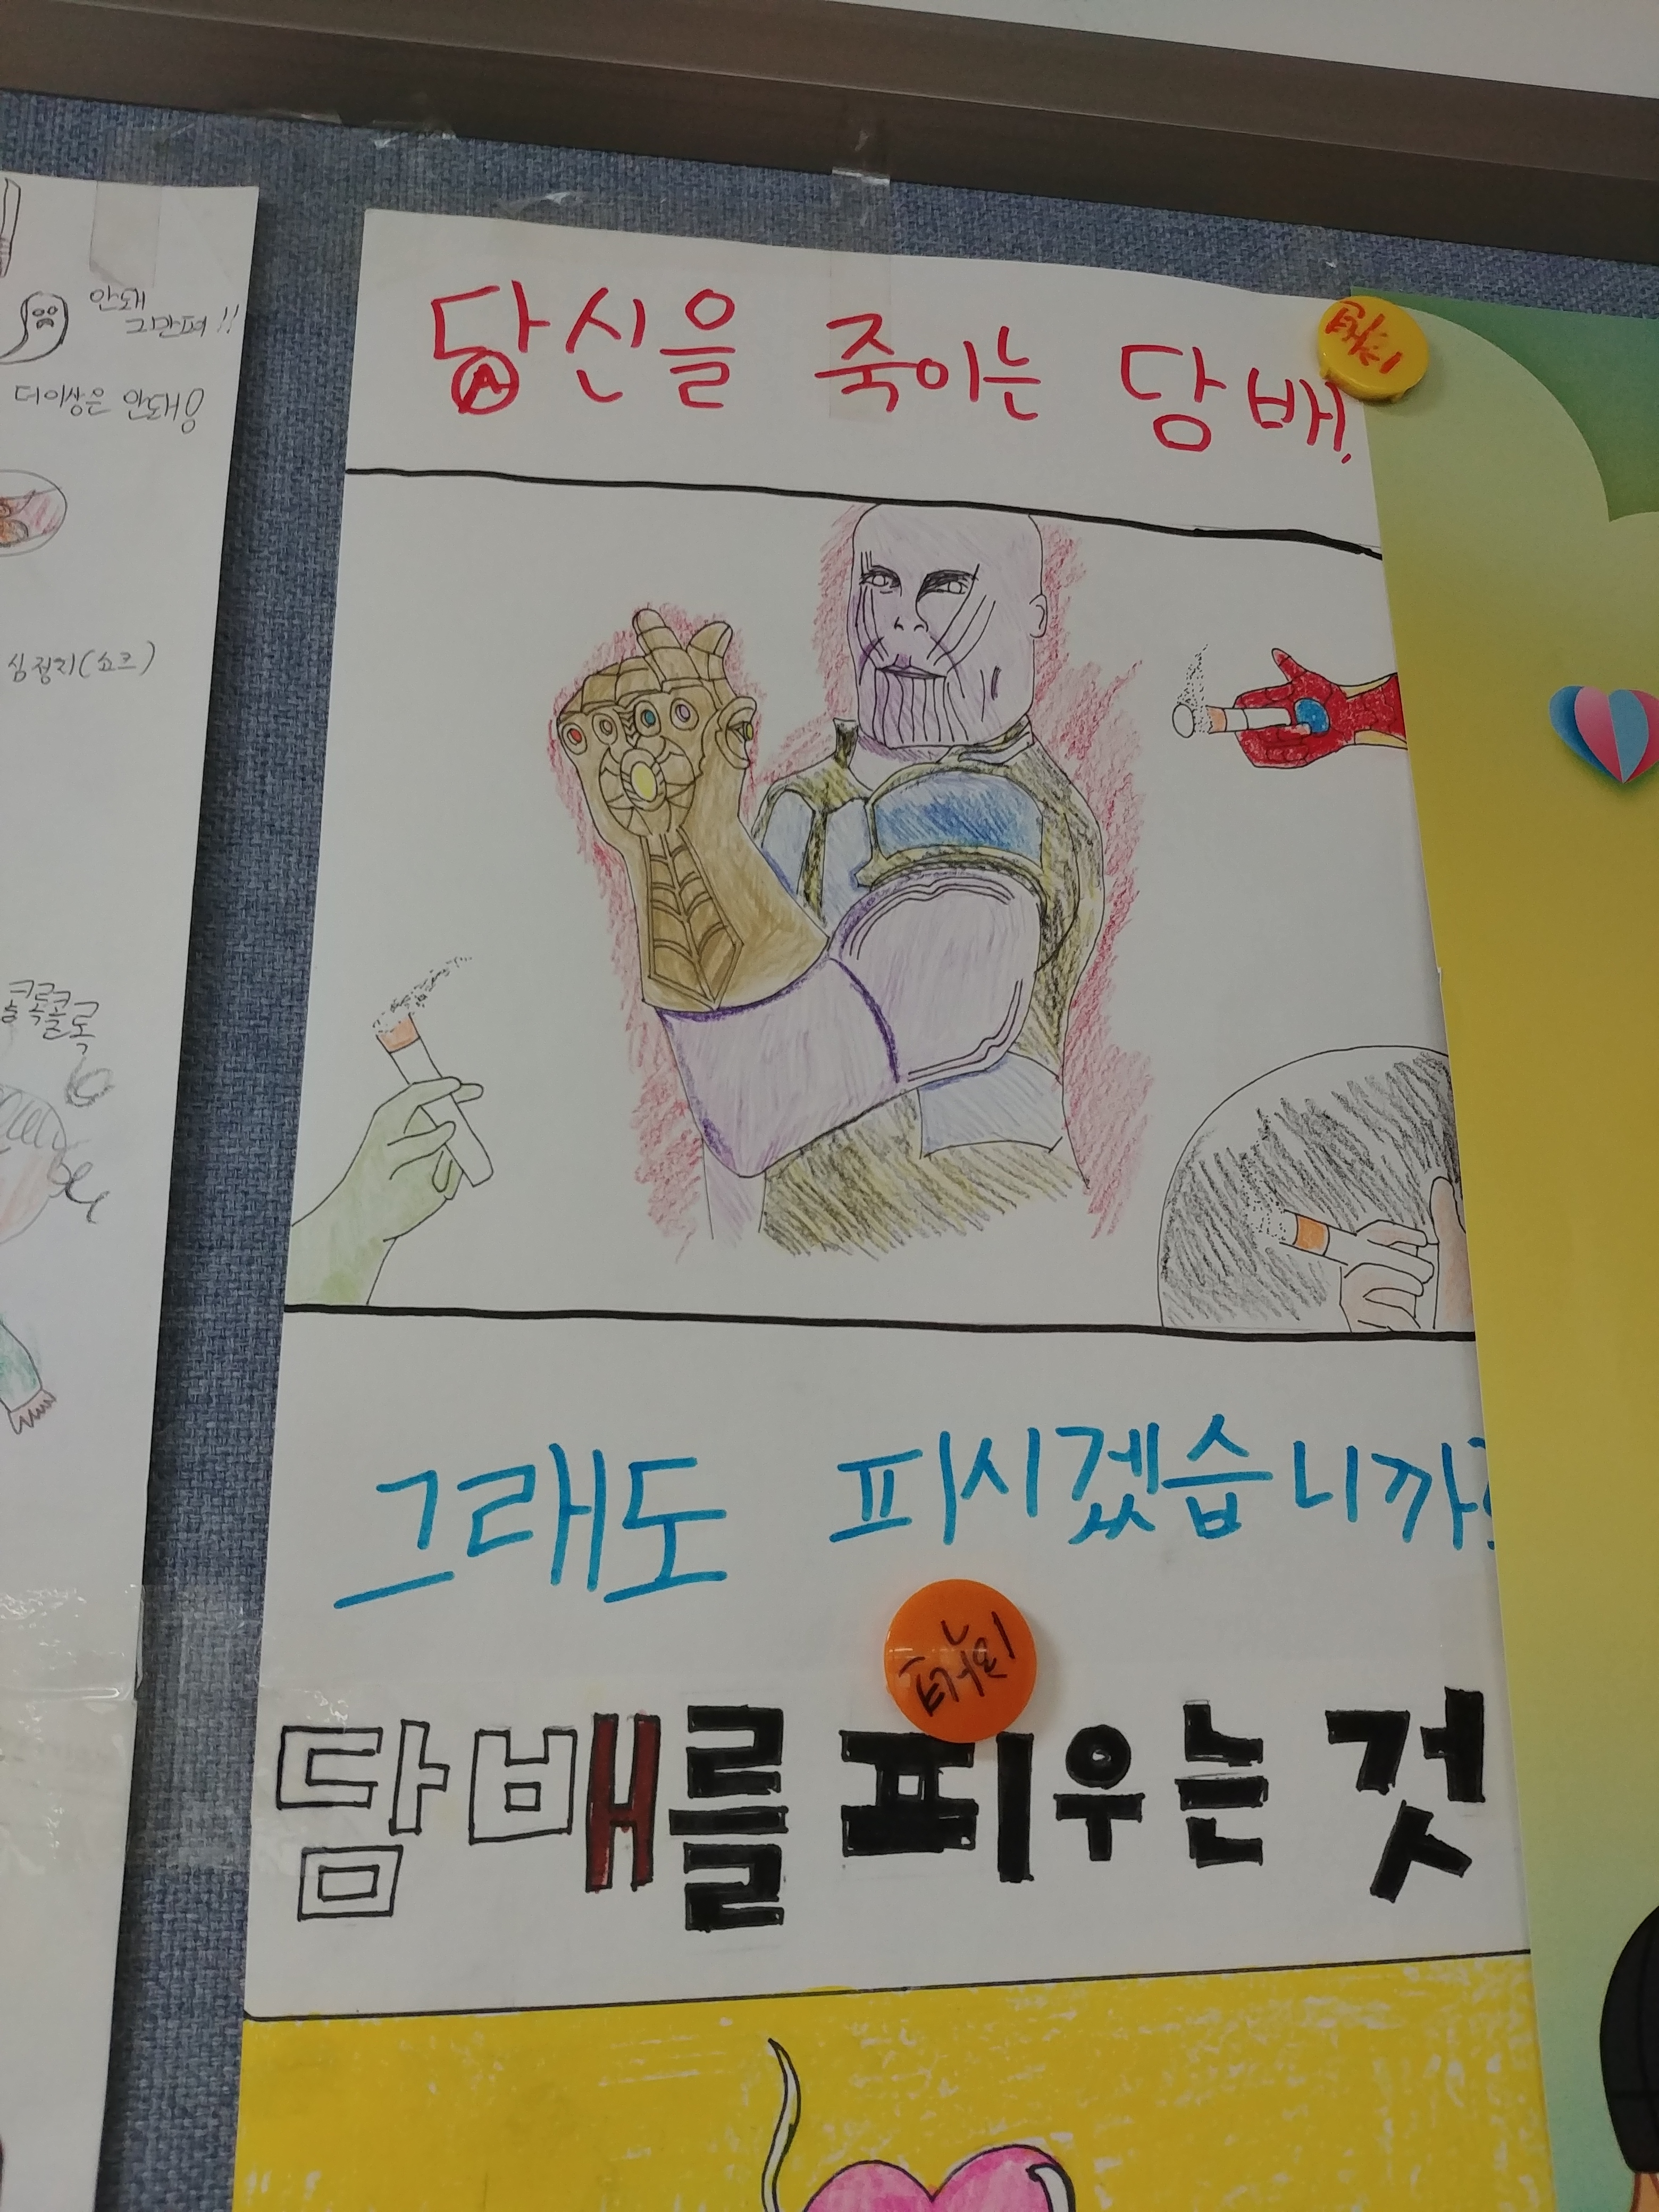 안돼
그만펴!!
더이상은 안돼용
심정지(쇼크)
콜록콜록
당신을 죽이는 당배,
그래도 피시겠습니까?
담배를 피우는 것